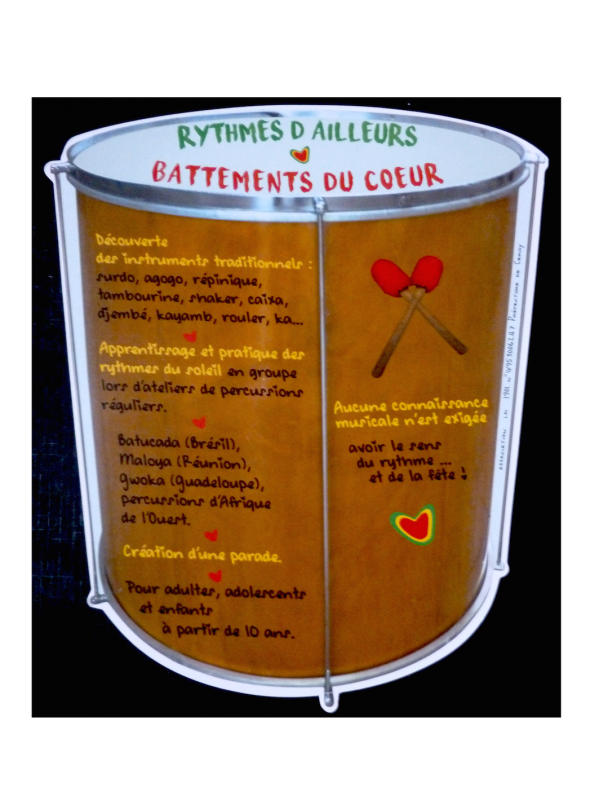 RYTHMES D AILLEURS
BATTEMENTS DU COEUR
Découverte
des instruments traditionnels :
surdo, agogo, répinique,
tambourine, shaker, caixa,
djembé, kayamb, rouler, ka...
Apprentissage et pratique des
rythmes du soleil en groupe
lors d'ateliers de percussions
réguliers.
Batucada (Brésil),
Maloya (Réunion),
gwoka (guadeloupe),
percussions d'Afrique
de l'Ouest.
Création d'une parade.
Pour adultes, adolescents
et enfants
à partir de 10 ans.
Aucune connaissance
musicale n'est exigée
avoir le sens
du rythme ...
et de la fête !
ASSOCIATION LOI 1901 n°